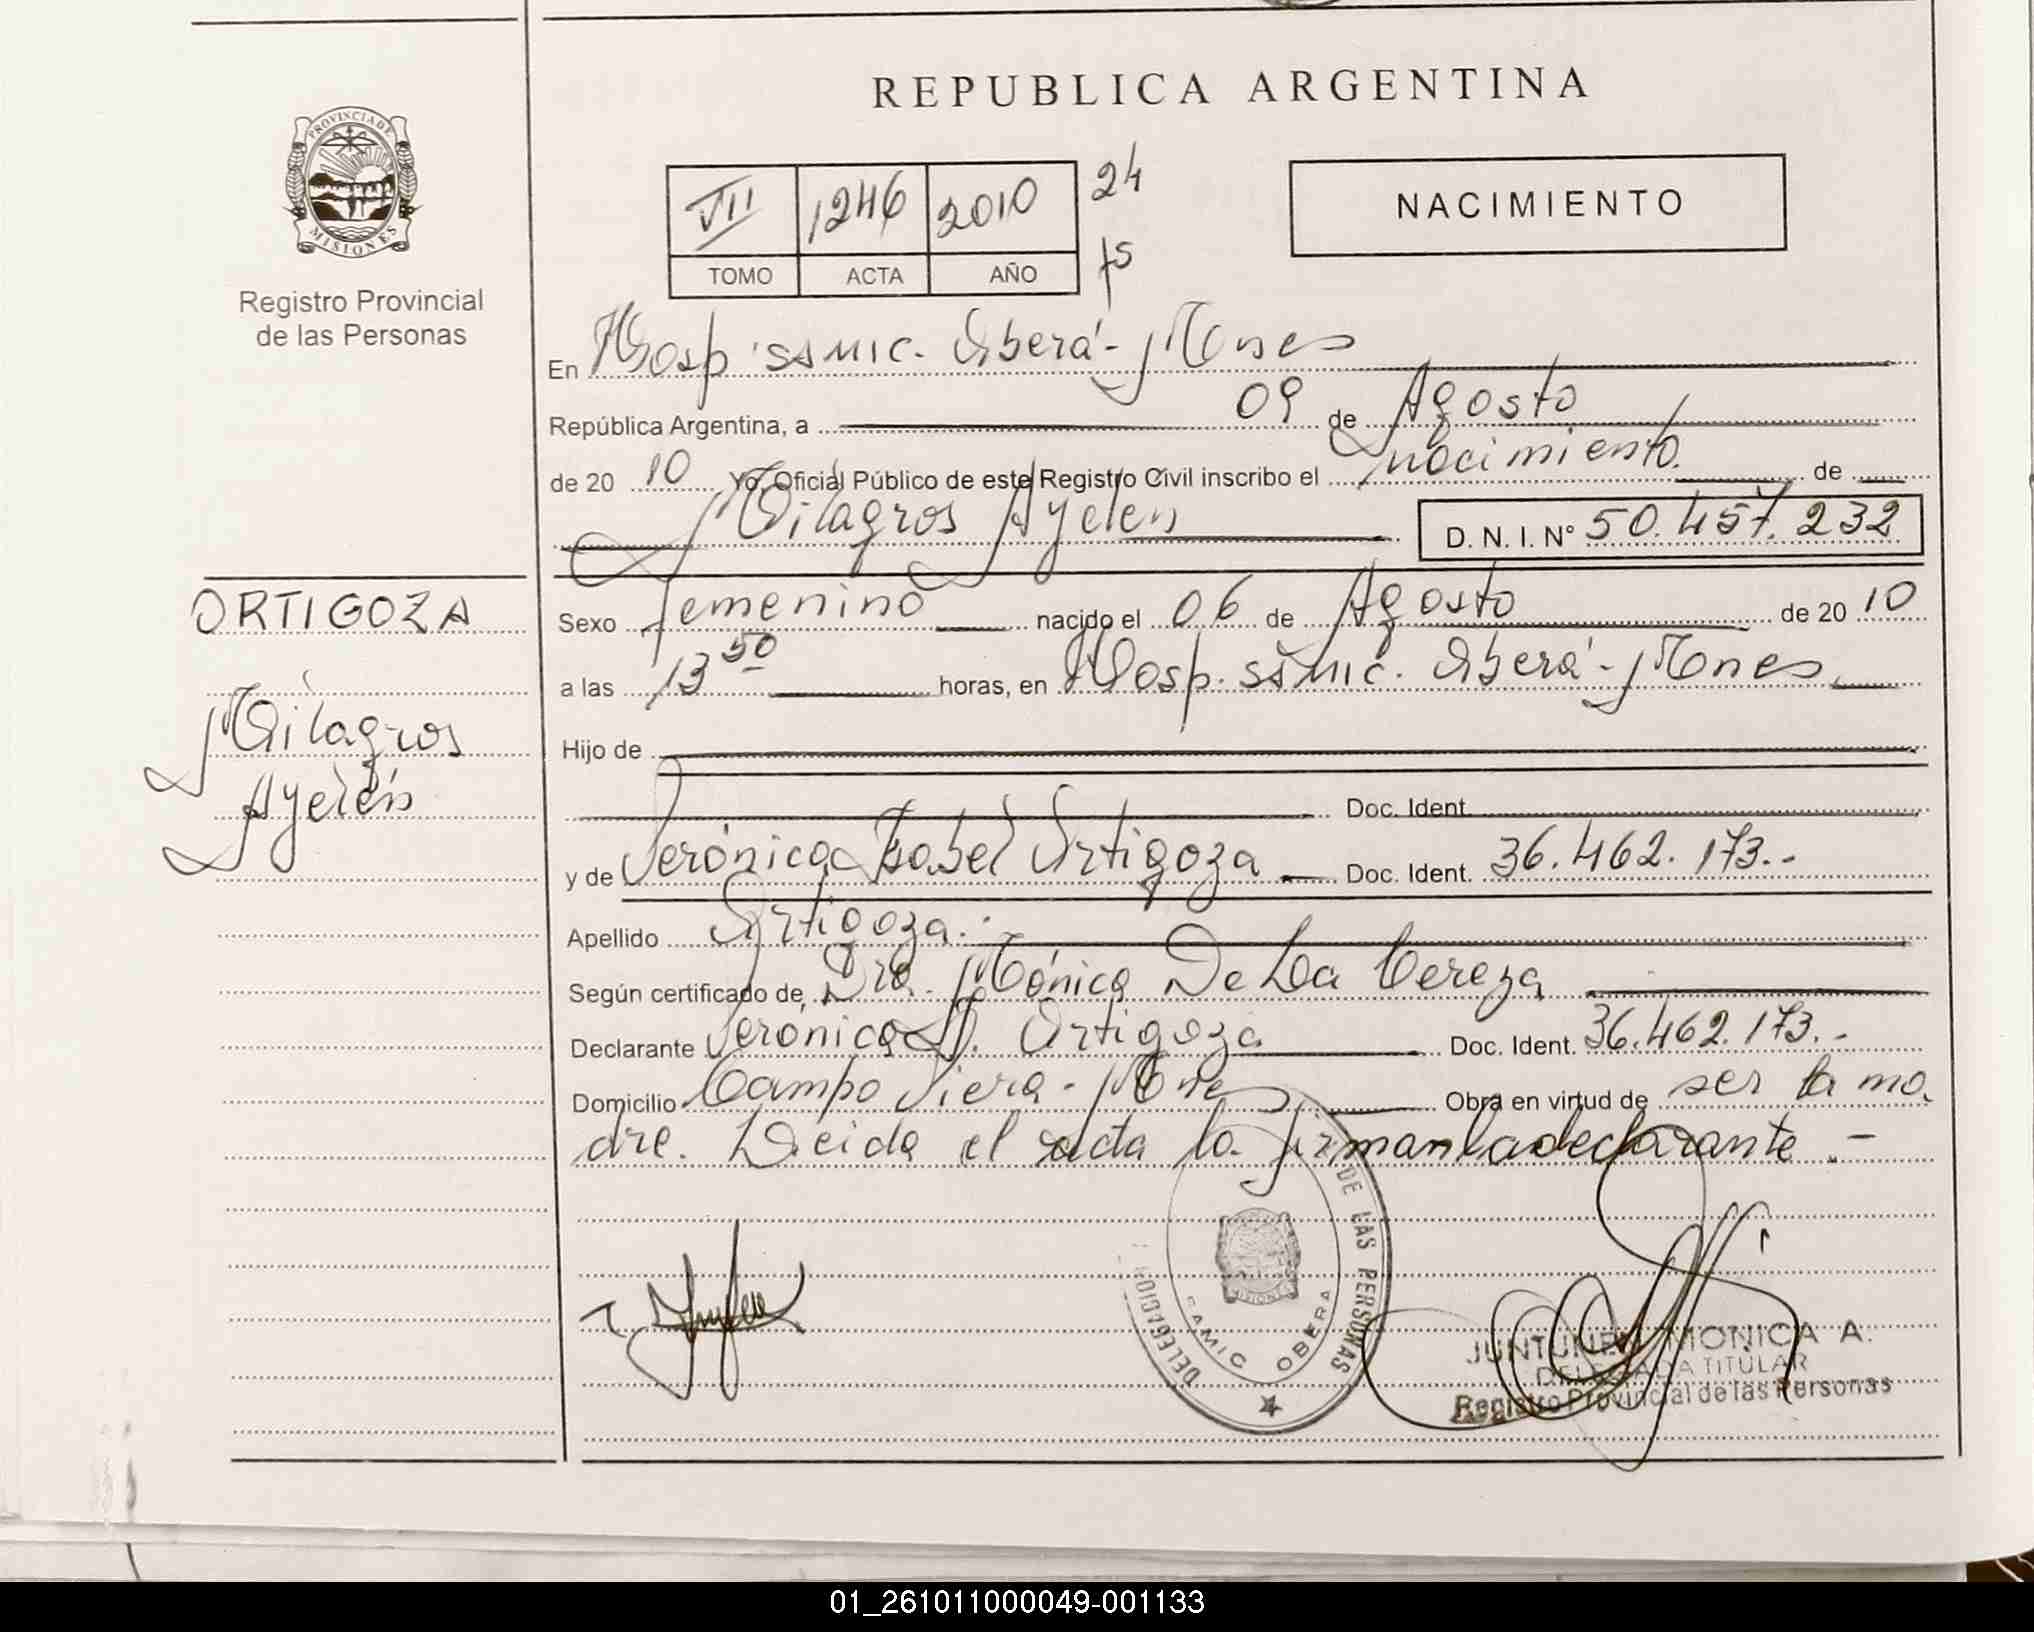 REPUBLICA ARGENTINA
PROVINCIA DE
MISIONES
Registro Provincial
de las Personas
VII 1246 2010 24
TOMO ACTA AÑO
NACIMIENTO
En Hosp. SAMIC. Oberá - Mones
República Argentina, a 09 de Agosto
de 20 10 Yo, Oficial Público de este Registro Civil inscribo el nacimiento. de
Milagros Ayelén D. N. I. N° 50.457.232
ORTIGOZA
Milagros
Ayelén
Sexo femenino nacido el 06 de Agosto de 20 10
a las 13 50 horas, en Hosp. SAMIC. Oberá - Mones
Hijo de
Doc. Ident.
y de Verónica Isabel Ortigoza Doc. Ident. 36.462.173.-
Apellido Ortigoza.
Según certificado de Dra. Mónica De La Cereza
Declarante Verónica I. Ortigoza Doc. Ident. 36.462.173.-
Domicilio Campo Viera - Mones Obra en virtud de ser la ma
dre. Leida el acta la firman la declarante.-
DELEGACION DE LAS PERSONAS
MISIONES
SAMIC OBERA
JUNTUNEN MONICA A.
DELEGADA TITULAR
Registro Provincial de las Personas
01_261011000049-001133